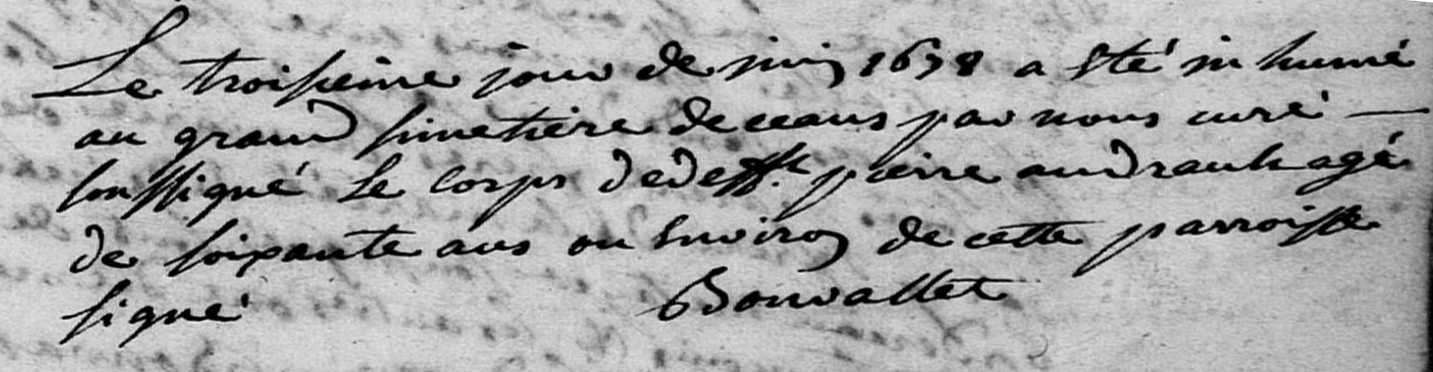 Le troisieme jour de juin 1678 a été in humé
au grand simetiere de ceans par nous curé —
soussigné le corps de deff.t pierre audrault agé
de soixante ans ou environ de cette parroisse
signé Bonvallet